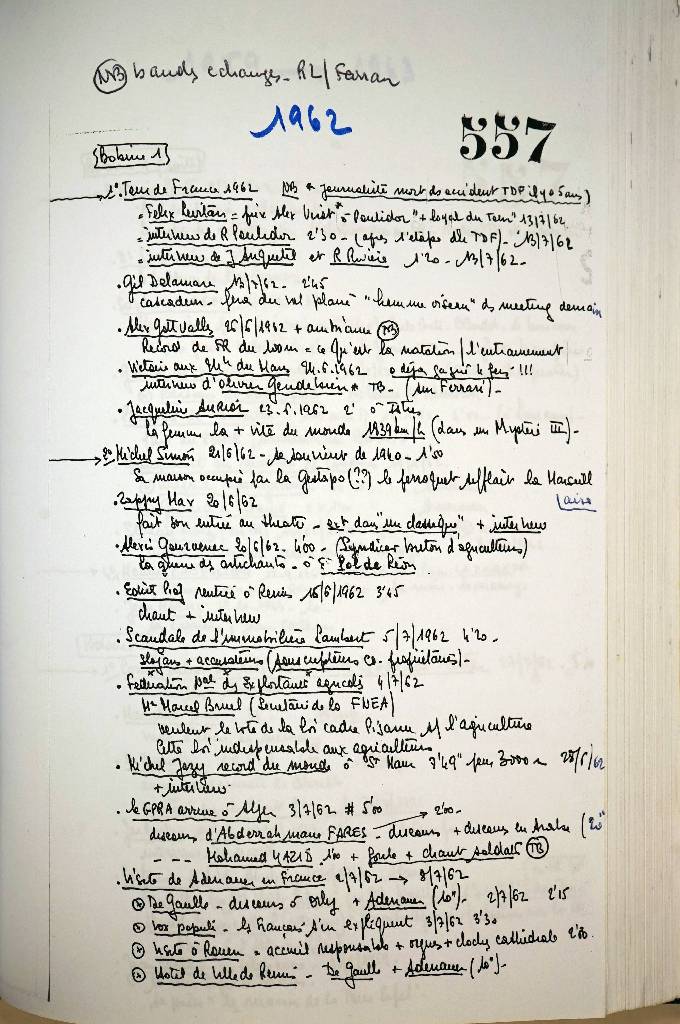 NB bandes echanges - RL/Farran
1962
557
Bobine 1
1° Tour de France 1962 NB * journaliste mort ds accident TDF il y a 5 ans)
= Felix Levitan = prix Alex Virot* à Poulidor "+ loyal du Tour" 13/7/62
= interview de R Poulidor 2'30 - (apres l'etape du TDF) - 13/7/62
= interview de J Anquetil et R Riviere 1'20 - 13/7/62 -
• Gil Delamare 13/7/62 - 2'45
cascadeur - fera du vol plané "homme oiseau" ds meeting demain
• Alex Gottvalles 26/6/1962 + ambiance NB
Record de FR du 100m = Qu'est la natation / l'entrainement
• Victoire aux 24h du Mans 24.6.1962 a deja gagné !!!
interview d'Olivier Gendebien * TB - (sur Ferrari) -
• Jacqueline Auriol 23.6.1962 2' à Istres
la femme la + vite du monde 1939 km/h (dans un Mystère III) -
2° Michel Simon 21/6/62 - se souvient de 1940 - 1'50
Sa maison occupée par la Gestapo (??) le perroquet sifflait la Marseill
aise
• Zappy Max 20/6/62
fait son entrée au theatre - ext dans "un classique" + interview
• Alexis Gourvenec 20/6/62 - 4'00 - (Syndicat breton d'agriculteurs)
la guerre des artichauts - à St Pol de Léon
• Edith Piaf rentrée à Reims 16/6/1962 3'45
chant + interview
• Scandale de l'immobilière Lambert 5/7/1962 4'20 -
slogans + accusations (souscripteurs co-propriétaires) -
• Federation Nale des Exploitants agricols 4/7/62
Mr Marcel Bruel (Secretaire de la FNEA)
veulent le vote de la loi cadre Pisani s/ l'agriculture
Cette loi indispensable aux agriculteurs
• Michel Jazy record du monde à St Maur 7'49" pour 3000 m 28/6/62
+ interview
• le GPRA arrive à Alger 3/7/62 # 5'00
discours d'Abderrahmane FARES - discours → 2'00 - + discours en Arabe (20"
- - - Mohamed YAZID 1'00 + foule + chant soldats TB
• Visite de Adenauer en France 2/7/62 → 8/7/62
De Gaulle - discours à Orly + Adenauer (10") - 2/7/62 2'15
vox populi - les Français s'en expliquent 3/7/62 3'30
Visite à Rouen = accueil responsable + orgues + cloches cathédrale 2'00
Hotel de Ville de Reims - De Gaulle + Adenauer (10") -